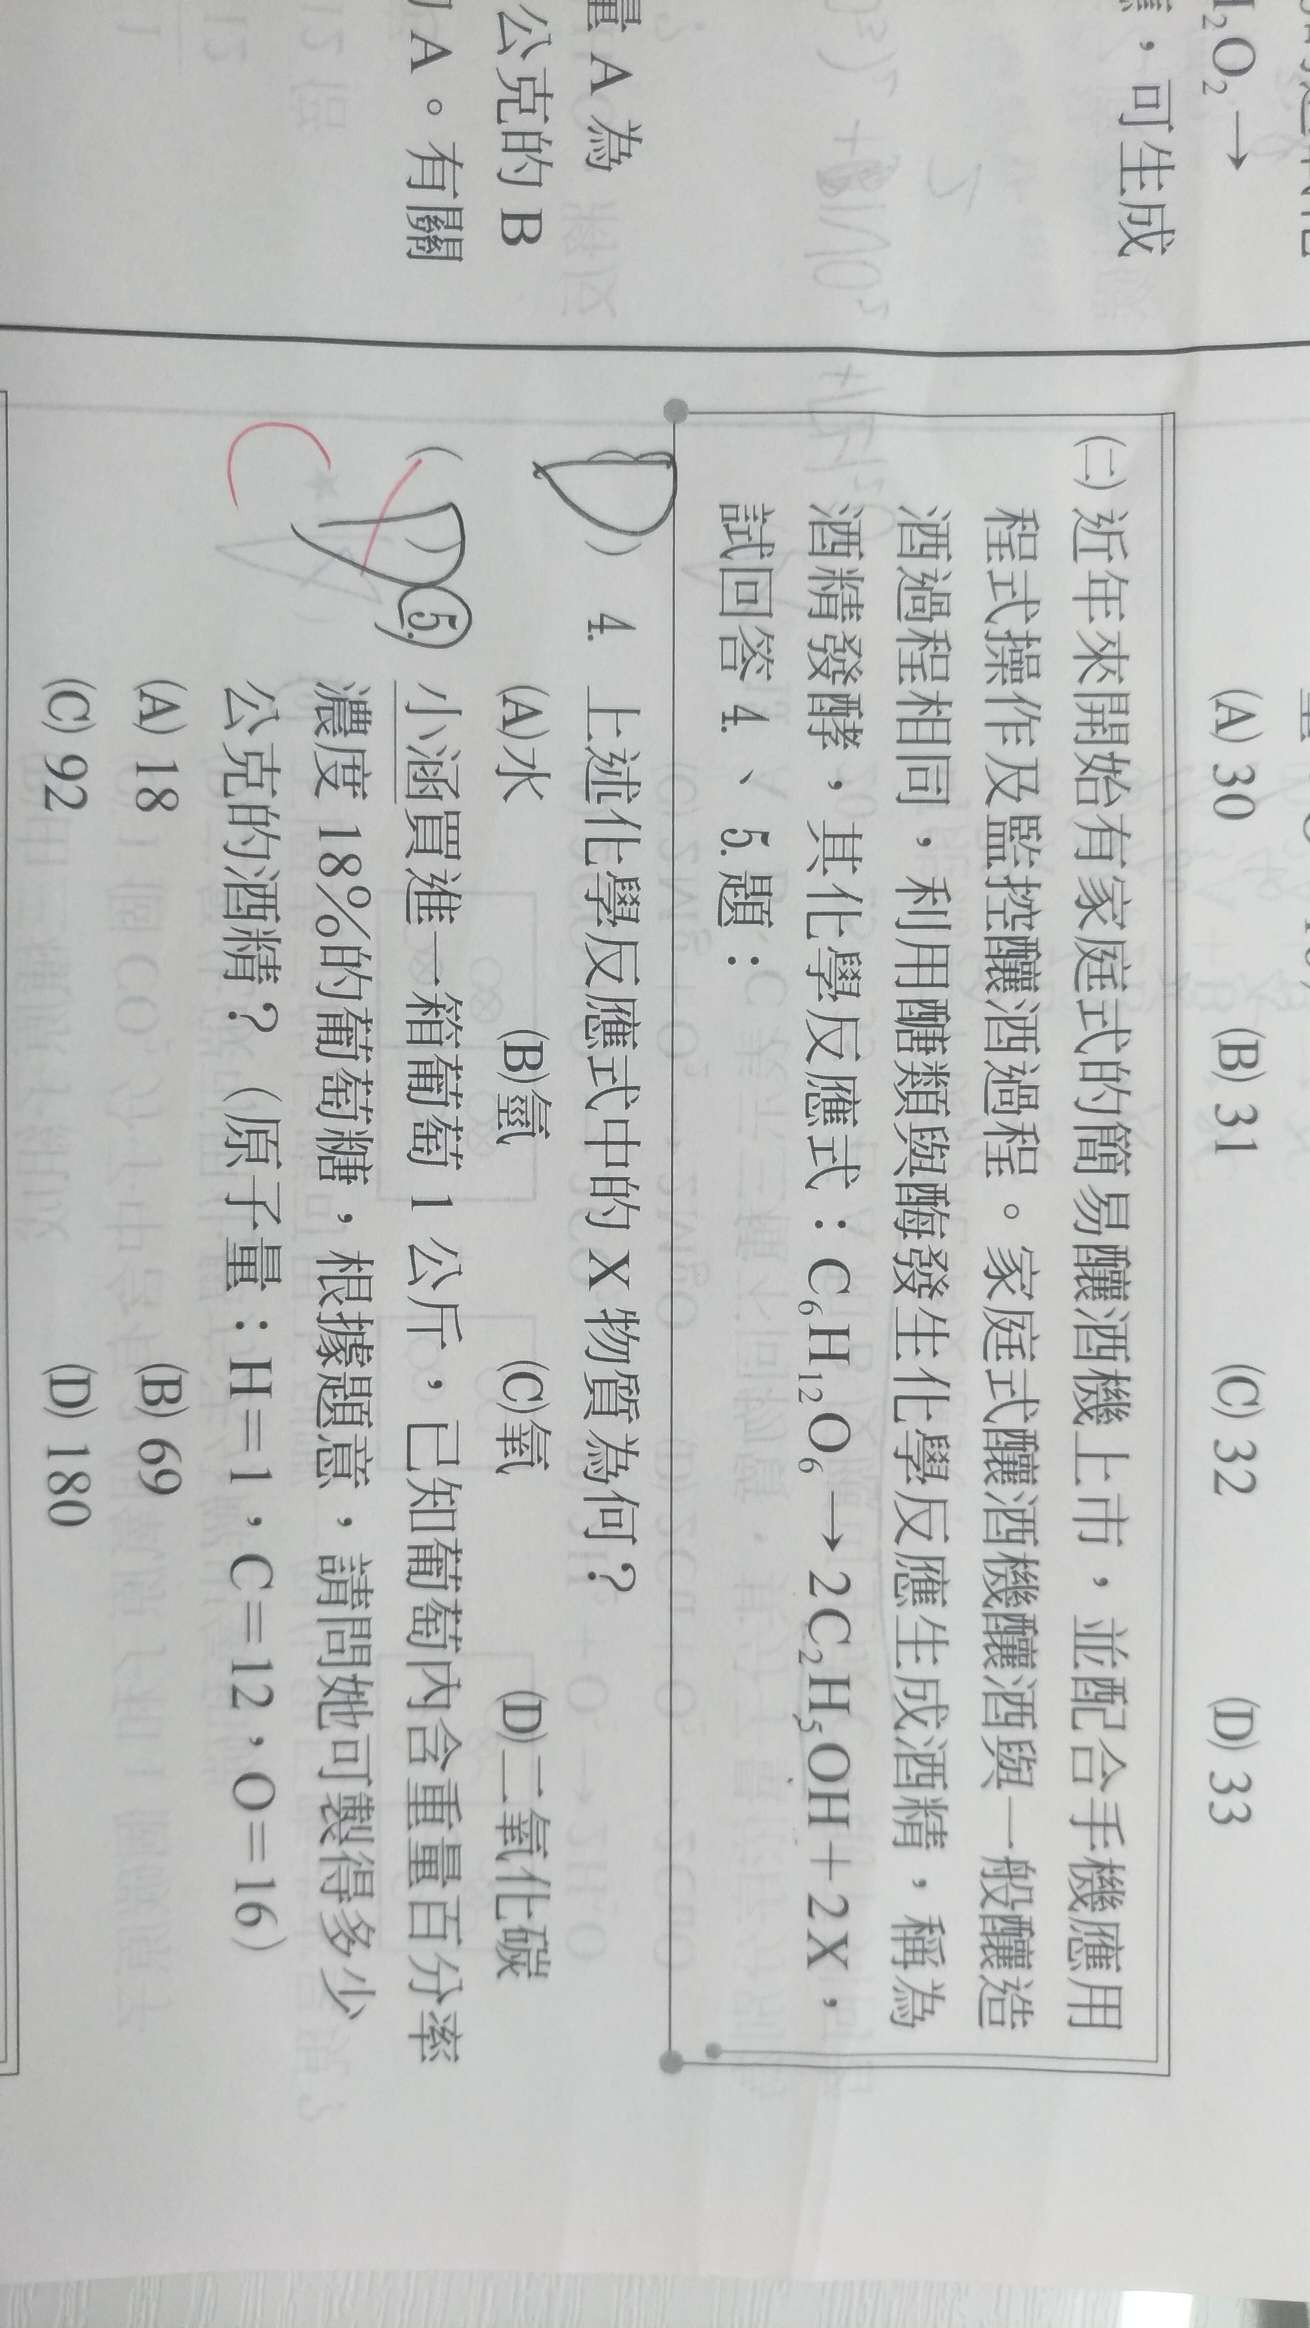 H₂O₂→
，可生成
量 A 為
公克的 B
A。有關
(A) 30 (B) 31 (C) 32 (D) 33
㈡近年來開始有家庭式的簡易釀酒機上市，並配合手機應用
程式操作及監控釀酒過程。家庭式釀酒機釀酒與一般釀造
酒過程相同，利用醣類與酶發生化學反應生成酒精，稱為
酒精發酵，其化學反應式：C₆H₁₂O₆→2C₂H₅OH＋2X，
試回答 4.、5.題：
(D) 4. 上述化學反應式中的 X 物質為何？
(A)水 (B)氫 (C)氧 (D)二氧化碳
C
(D) 5. 小涵買進一箱葡萄 1 公斤，已知葡萄內含重量百分率
濃度 18%的葡萄糖，根據題意，請問她可製得多少
公克的酒精？（原子量：H＝1，C＝12，O＝16）
(A) 18 (B) 69
(C) 92 (D) 180